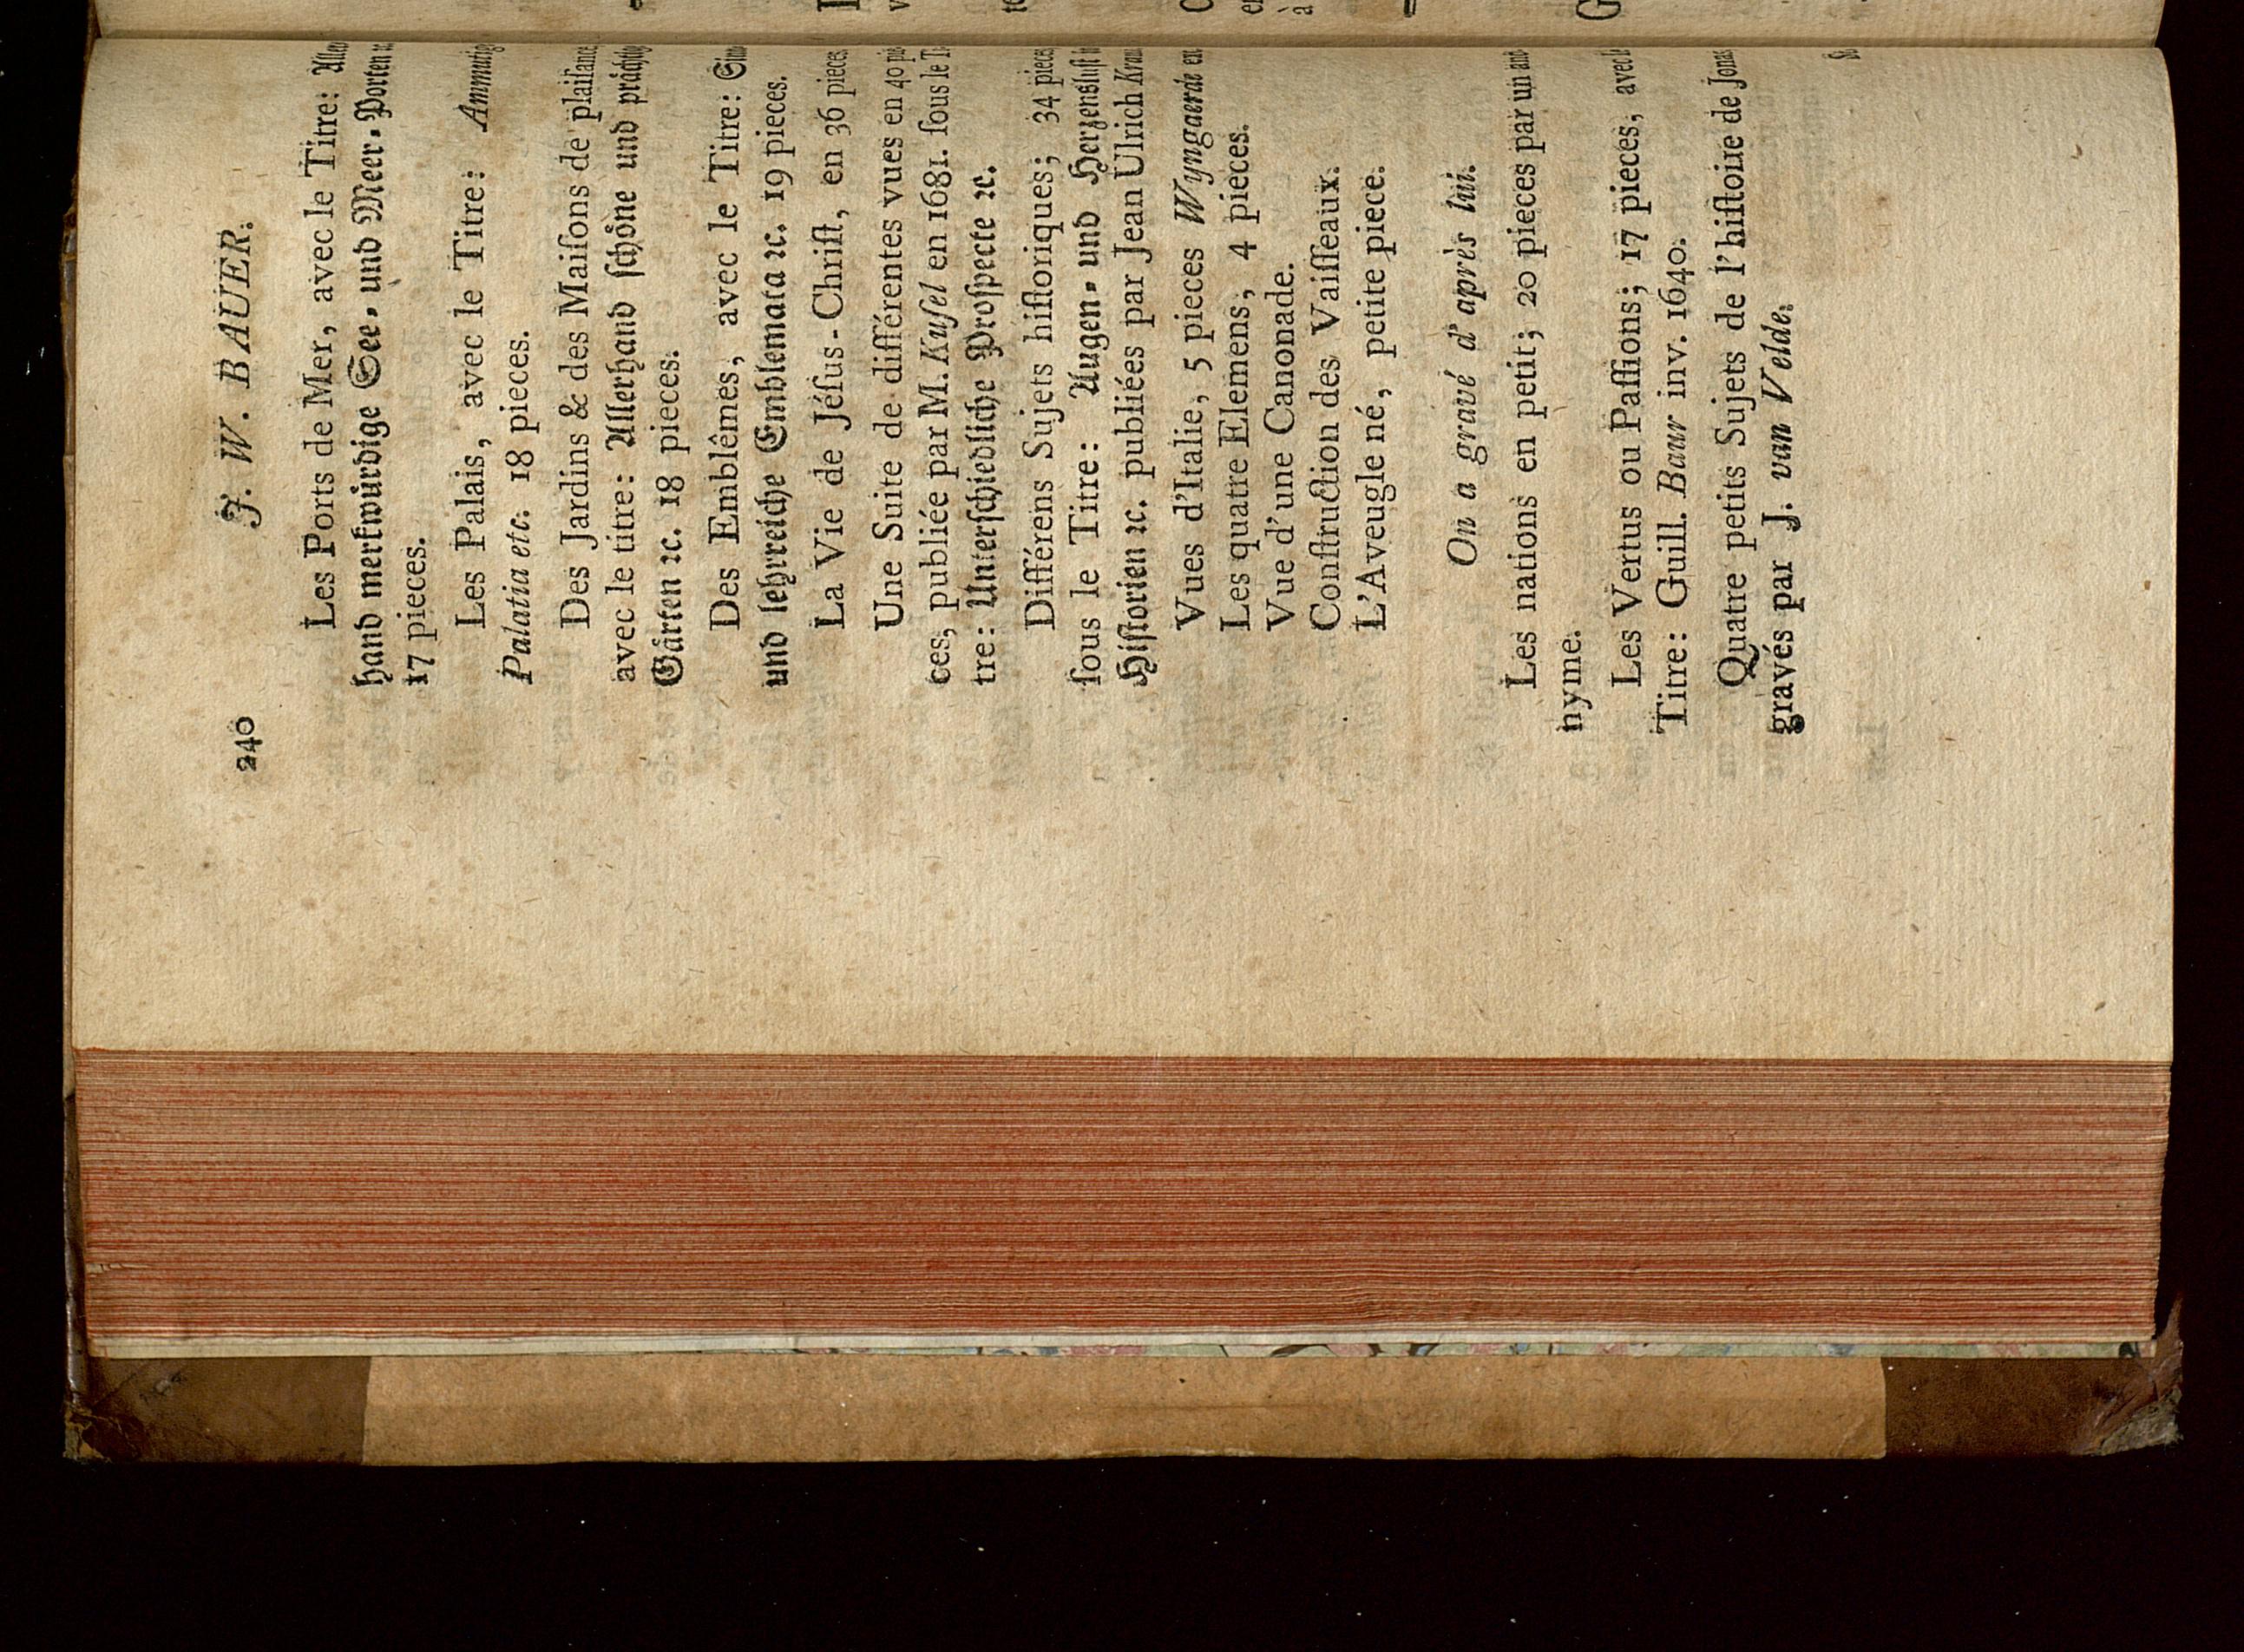 240 J. W. BAUER.
Les Ports de Mer, avec le Titre: Aller
hand merkwürdige See- und Meer-Porten ꝛc.
17 pieces.
Les Palais, avec le Titre: Ammutige
Palatia etc. 18 pieces.
Des Jardins & des Maiſons de plaiſance
avec le titre: Allerhand ſchöne und prächtige
Gärten ꝛc. 18 pieces.
Des Emblêmes, avec le Titre:
und lehrreiche Emblemata ꝛc. 19 pieces.
La Vie de Jéſus-Chriſt, en 36 pieces
Une Suite de différentes vues en 40 pie
ces, publiée par M. Kuſel en 1681. ſous le Ti
tre: Unterſchiedliche Proſpecte ꝛc.
Différens Sujets hiſtoriques; 34 pieces
ſous le Titre: Augen- und Herzensluſt in
Hiſtorien ꝛc. publiées par Jean Ulrich Kraus
Vues d'Italie, 5 pieces Wyngaerde
Les quatre Elemens; 4 pieces.
Vue d'une Canonade.
Conſtruction des Vaiſſeaux.
L'Aveugle né, petite piece.
On a gravé d'après lui.
Les nations en petit; 20 pieces par un ano
nyme.
Les Vertus ou Paſſions; 17 pieces, avec le
Titre: Guill. Baur inv. 1640.
Quatre petits Sujets de l'hiſtoire de Jonas
gravés par J. van Velde.